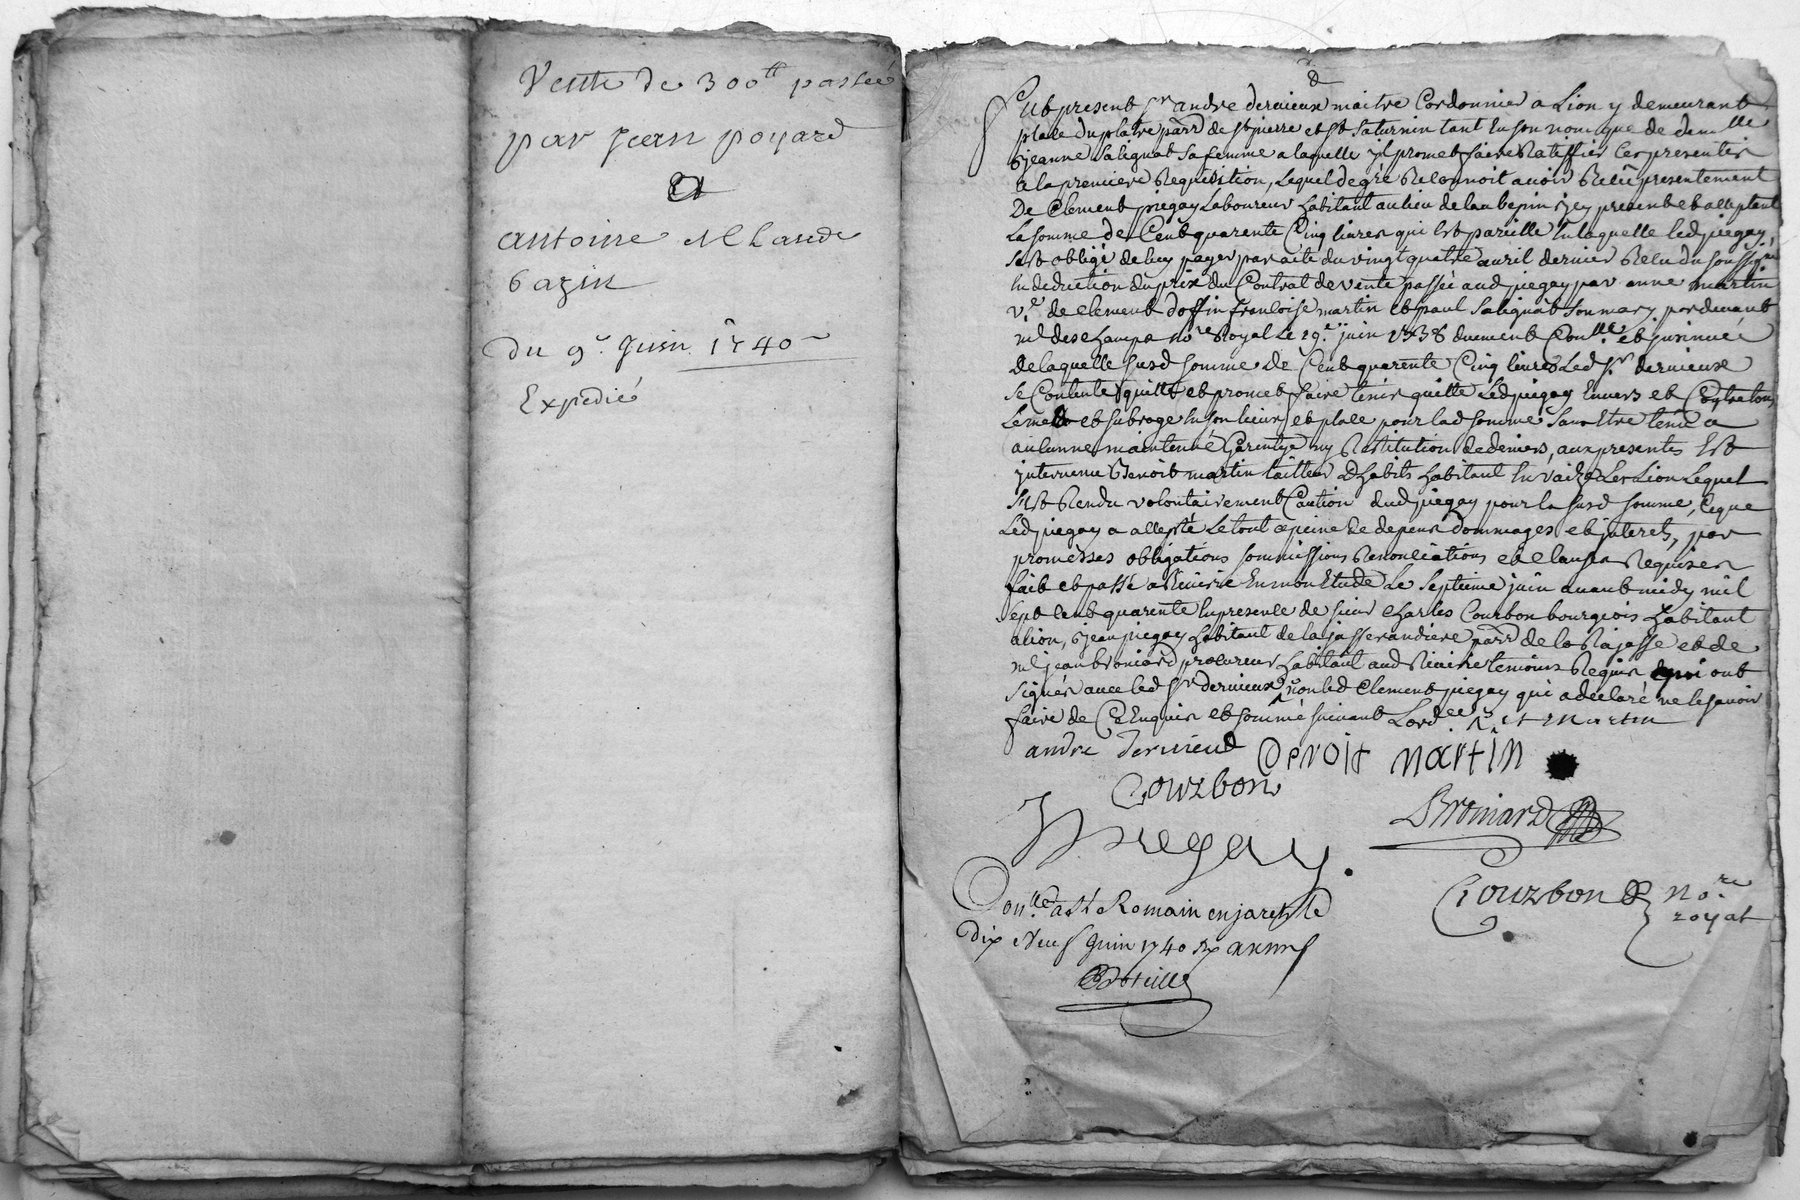 Vente de 300tt passée
par Jean poyard
A
antoine et Claude
bazin
Du 9e Juin 1740
Expedié
Fut present sr andre dervieux maitre Cordonnier a Lion y demeurant
place du platre parr de st pierre et st Saturnin tant en son nom que de demlle
jeanne Salignat sa femme a laquelle il promet faire Ratiffier ces presentes
a la premiere Requisition, Lequel de gré Reconnoit avoir Reçû presentement
De Clement piegay Laboureur habitant au lieu de present et acceptant
La somme de Cent quarente Cinq livres qui est pareille en laquelle led piegay
s'est obligé de luy payer par acte du vingt quatre avril dernier Recu du soussigné
en deduction du prix du Contrat de vente passée aud piegay par anne martin
ve de Clement doffin francoise martin et paul Salignat son mary pardevant
me deschamps nore Royal Le 29e juin 1738 duement Conlle et jnsinué
de laquelle susd somme de Cent quarente Cinq livres Led sr dervieux
se Contente quitte et promet faire tenir quitte Led piegay Envers et Contre tous
Le met et subroge en son lieux et place pour lad somme sans Etre tenu a
aucunne maintenue Garentye ny Restitution de deniers, aux presentes Est
jntervenu Benoit martin tailleur D'habits habitant en vaize Les Lion Lequel
s'est Rendu volontairement Caution dud piegay pour la susd somme, Ce que
Led piegay a accepté Le tout a peine de depens dommages et jnterets, par
promesses obligations soumissions Renonciations et Clauses Requises
fait et passé a Riverie En mon Etude Le septieme juin avant midy mil
sept Cent quarente En presence de sieur Charles Courbon bourgeois habitant
a Lion, jean piegay habitant de la jasserandiere parr de la Rajasse et de
me jean broniard procureur habitant aud Riverie temoins Requis qui ont
signés avec led sr dervieux non led Clement piegay qui a declaré ne le savoir
faire de Ce Enquis et sommé suivant Lordce et martin
andre dervieux Benoit martin
Courbon
Broniard
piegay
Courbon nore
royal
Conlle a st Romain en jarest le
dix Neuf Juin 1740